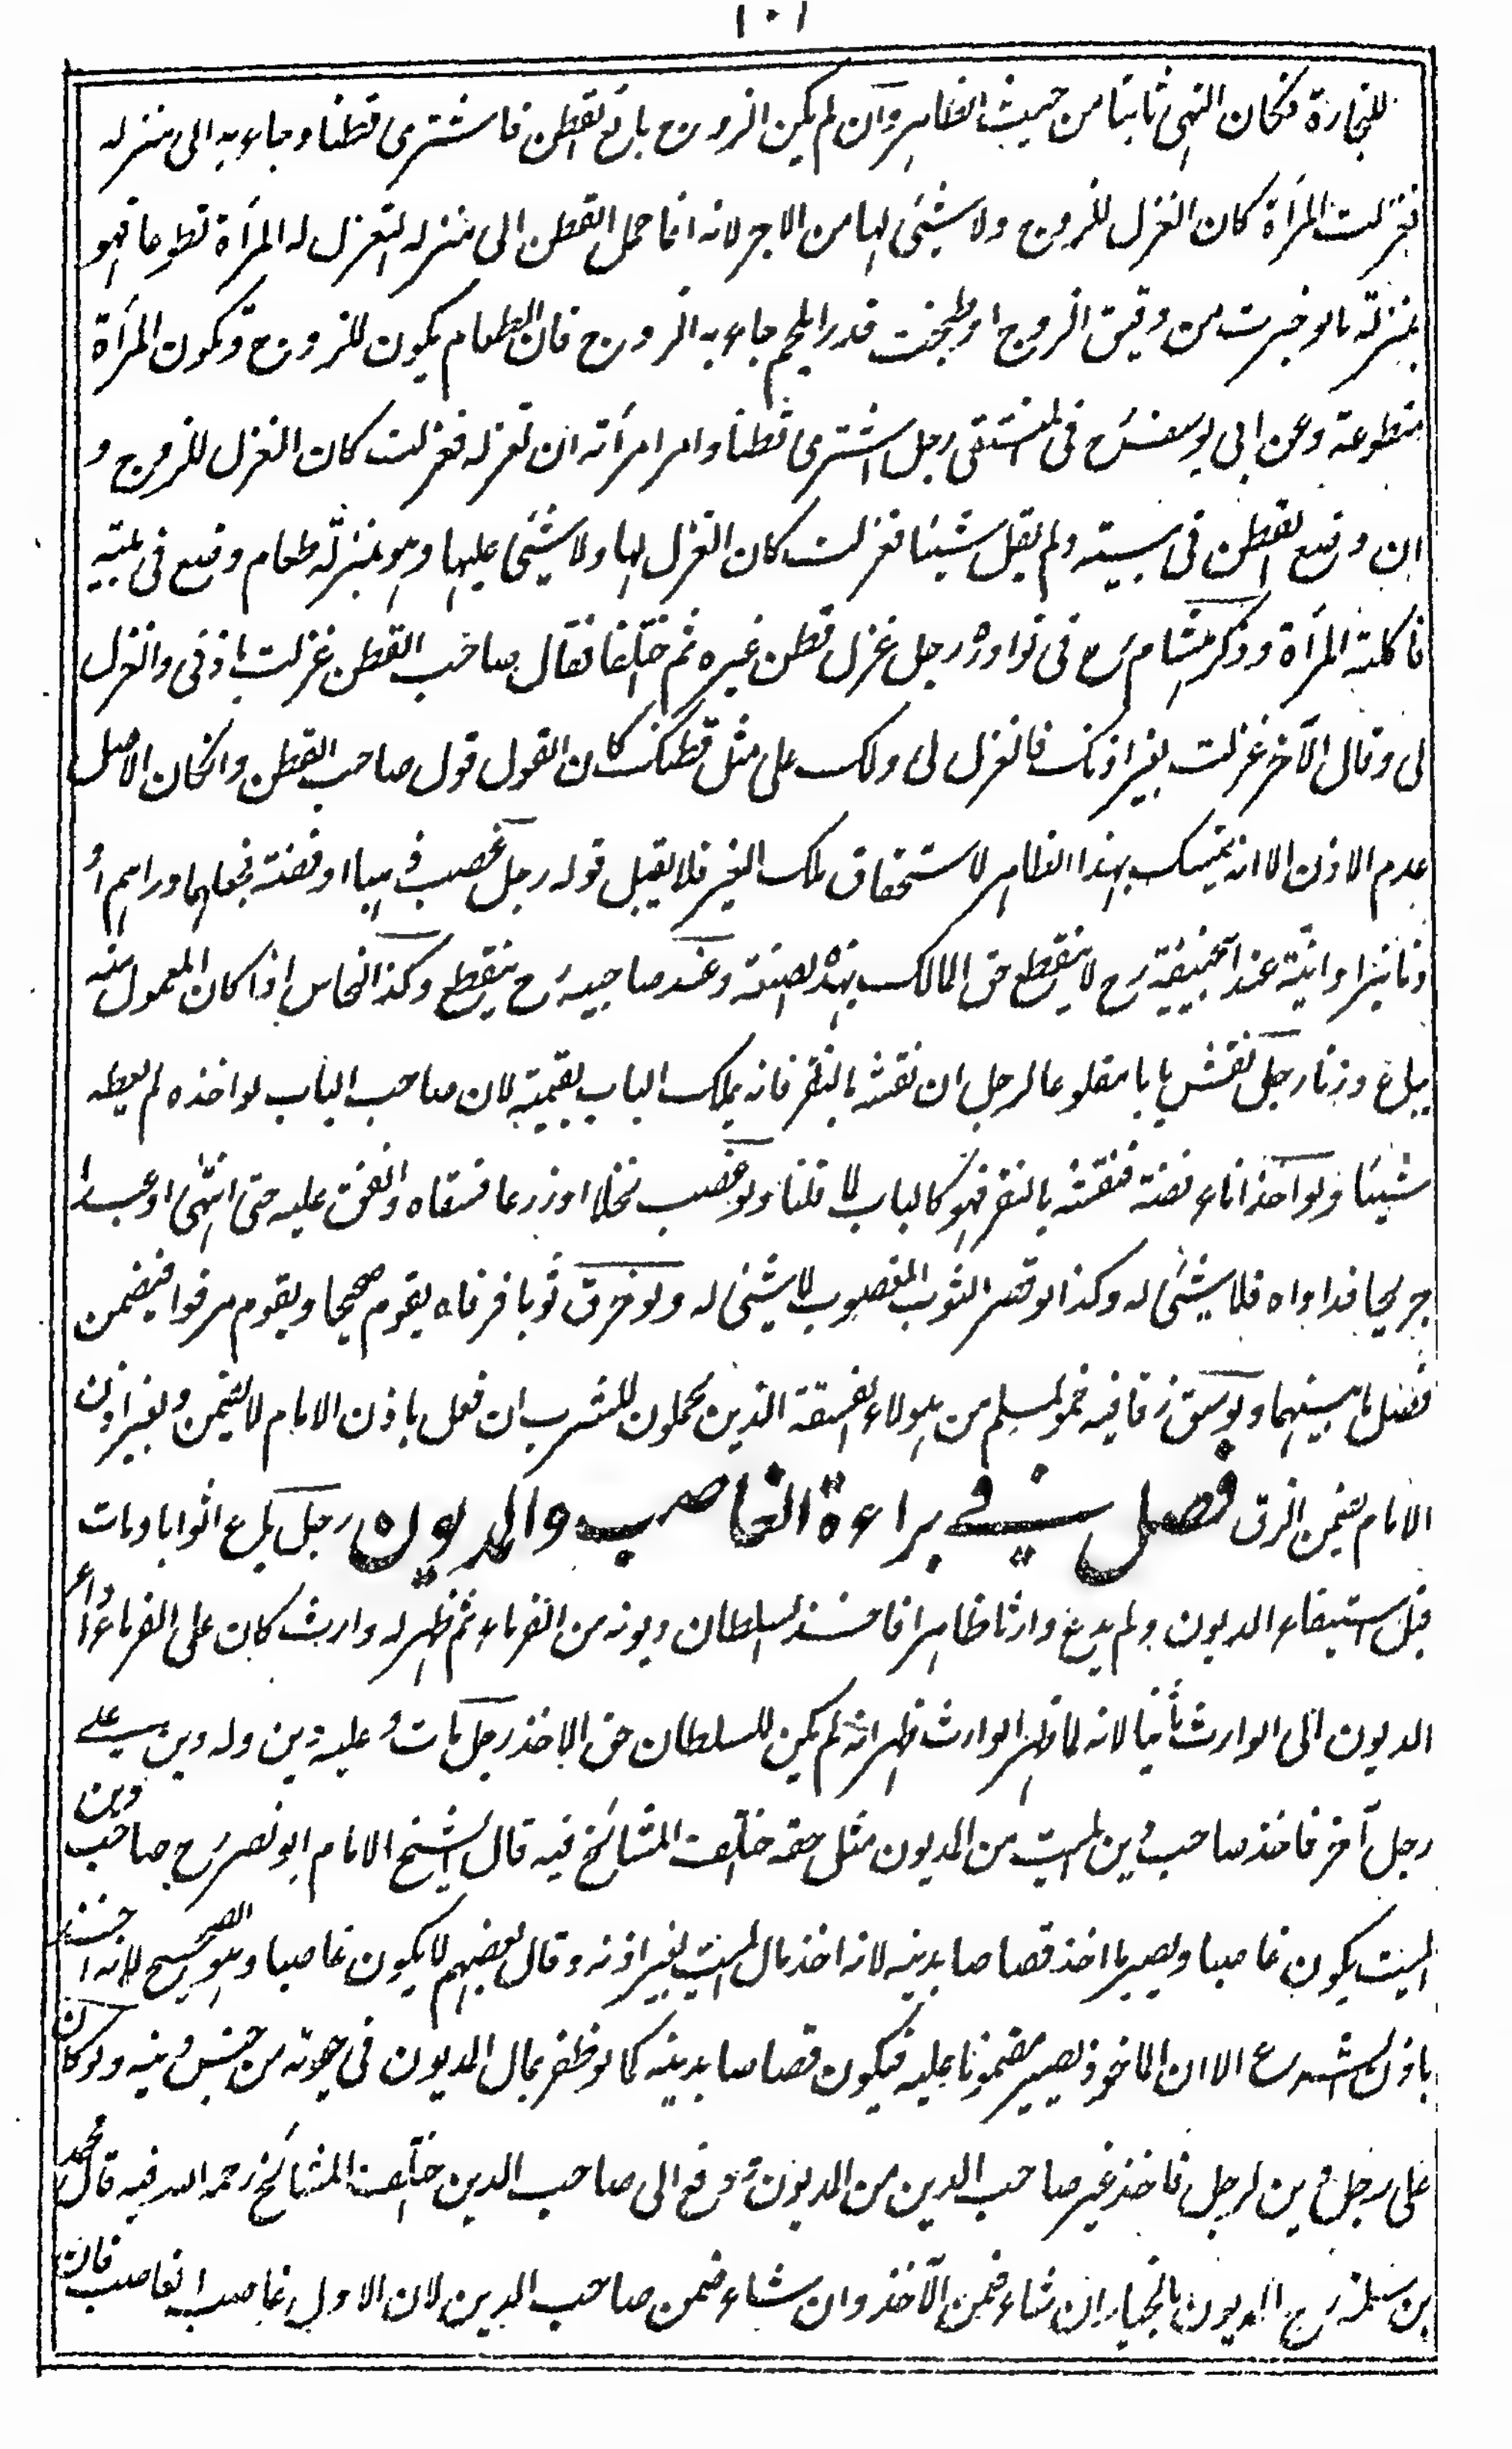 ١٠١
للتجارة فكان النهي ثابتا من حيث الظاهر وان لم يكن الزوج بائع القطن فاشترى قطنا وجاء به الى منزله
فغزلت المرأة كان الغزل للزوج ولا شيئ لها من الاجر لانه انما حمل القطن الى منزله لتغزل له المرأة تطوعا فهو
بمنزلة ما لو خبزت من دقيق الزوج او طبخت قدرا بلحم جاء به الزوج فان الطعام يكون للزوج وتكون المرأة
متطوعة وعن ابي يوسف رح في المنتقى رجل اشترى قطنا وامر امرأته ان تغزله فغزلت كان الغزل للزوج و
ان وضع القطن في بيته ولم يقل شيئا فغزلت كان الغزل لها ولا شيئ عليها وهو بمنزلة طعام وضع في بيته
فاكلته المرأة وذكر هشام رح في نوادره رجل غزل قطن غيره ثم اختلفا فقال صاحب القطن غزلت باذني والغزل
لي وقال الآخر غزلت بغير اذنك فالغزل لي ولك علي مثل قطنك كان القول قول صاحب القطن وانكان الاصل
عدم الاذن الا انه يتمسك بهذا الظاهر لاستحقاق ملك الغير فلا يقبل قوله رجل غصب ذهبا او فضة فجعلها دراهم أو
دنانير او انية عند ابيحنيفة رح لا ينقطع حق المالك بهذه الصنعة وعند صاحبيه رح ينقطع وكذا النحاس اذا كان المعمول منه
يباع وزنا رجل نقش بابا مقلوعا لرجل ان نقشه بالنقر فانه يملك الباب بقيمته لان صاحب الباب لو اخذه لم يعطه
شيئا ولو اخذ اناء فضة فنقشه بالنقر فهو كالباب لما قلنا ولو غصب نخلا او زرعا فسقاه وانفق عليه حتى انتهى او عبدا
جريحا فداواه فلا شيئ له وكذا لو قصر الثوب المغصوب لا شيئ له ولو خرق ثوبا فرفاه يقوم صحيحا ويقوم مرفوا فيضمن
فضل ما بينهما ولو شق زقا فيه خمر لمسلم من هؤلاء الفسقة الذين يحملون للشرب ان فعل باذن الامام لا يضمن وبغير اذن
الامام يضمن الزق فصل في براءة الغاصب والمديون رجل باع اثوابا ومات
قبل استيفاء الديون ولم يدع وارثا ظاهرا فاخذ السلطان ديونه من الغرماء ثم ظهر له وارث كان على الغرماء اداء
الديون الى الوارث ثانيا لانه لما ظهر الوارث ظهر انه لم يكن للسلطان حق الاخذ رجل مات وعليه دين وله دين على
رجل آخر فاخذ صاحب دين الميت من المديون مثل حقه اختلف المشائخ فيه قال الشيخ الامام ابو نصر رح صاحب دين
الميت يكون غاصبا ويصير ما اخذ قصاصا بدينه لانه اخذ مال الميت بغير اذنه وقال بعضهم لا يكون غاصبا وهو الصحيح لانه اخذ
باذن الشرع الا ان الماخوذ يصير مضمونا عليه فيكون قصاصا بدينه كما لو ظفر بمال المديون في حيوته من جنس دينه ولو كان
على رجل دين لرجل فاخذ غير صاحب الدين من المديون ودفع الى صاحب الدين اختلف المشائخ رحمه الله فيه قال محمد
بن سلمة رح المديون بالخيار ان شاء ضمن الآخذ وان شاء ضمن صاحب الدين لان الاول غاصب الغاصب فان